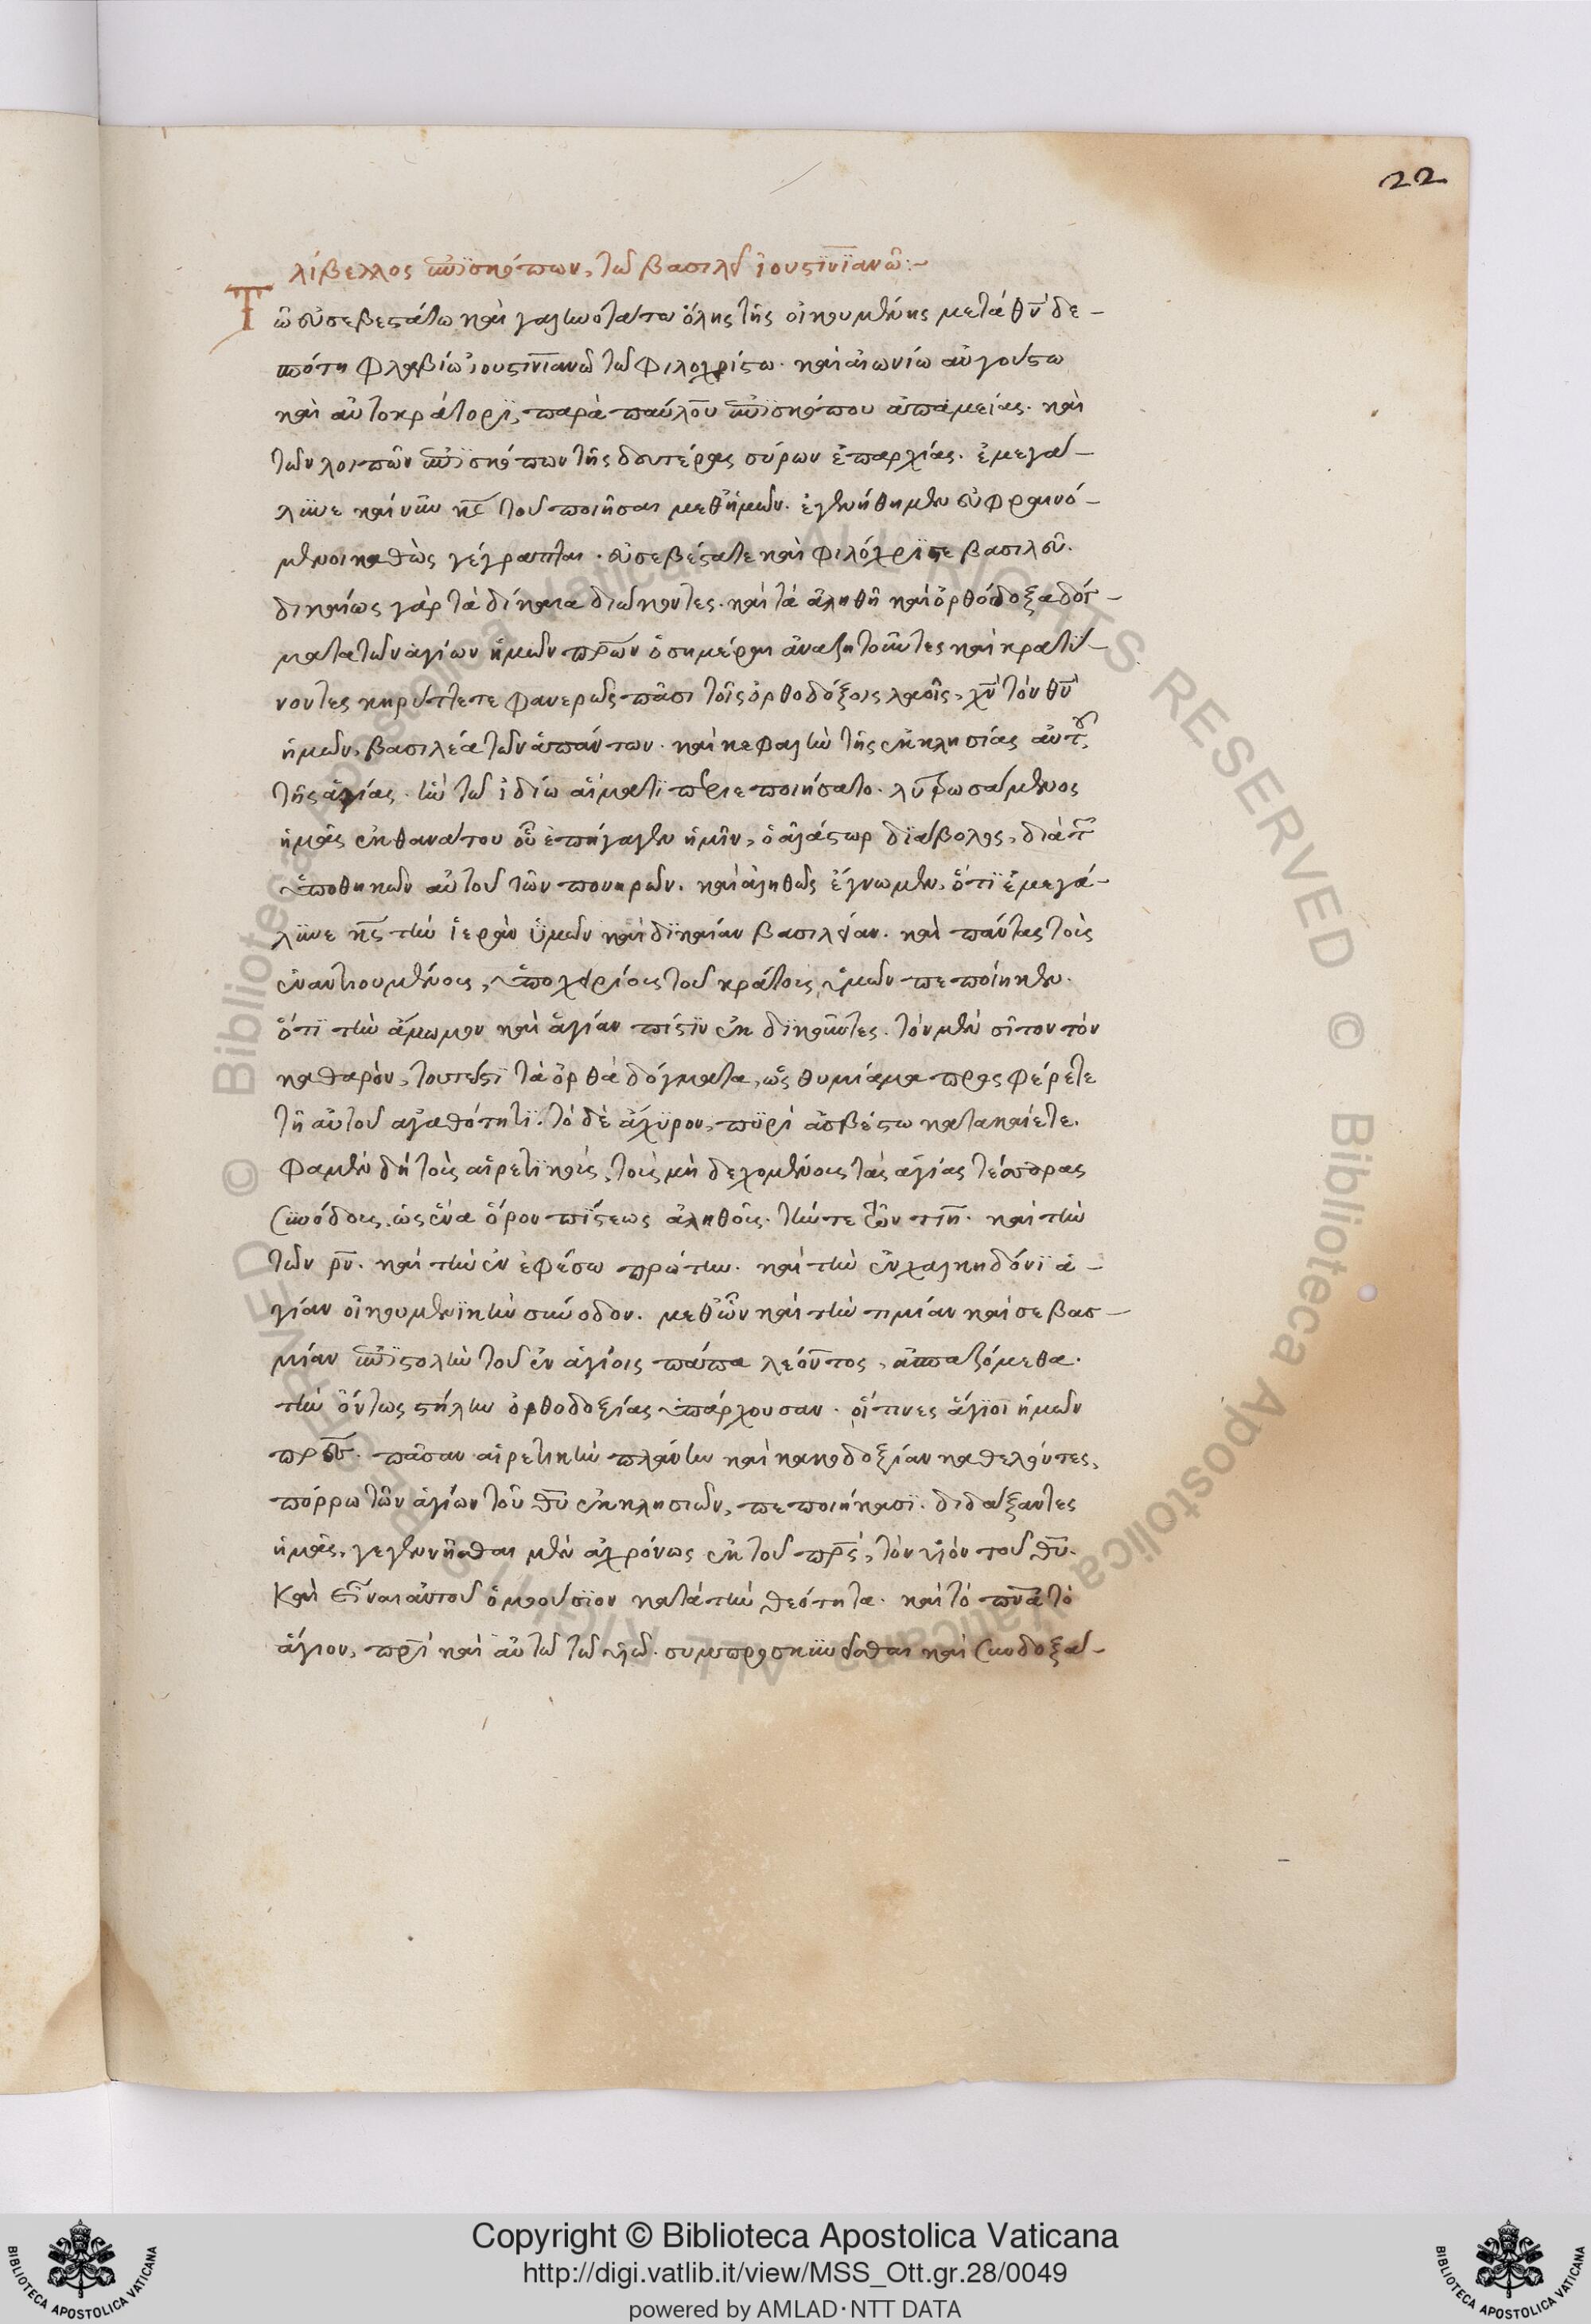 22
λίβελλος ἐπϊσκόπων, τῶ βασιλεῖ ἰουστϊνϊανῶ:-
Τῶ εὐσεβεστάτω καὶ γαληνοτάτω ὅλης τῆς οἰκουμένης μετὰ θν̄ δε-
σπότη φλαβίω ἰουστινϊανῶ τῶ φιλοχρίστω. καὶ αἰωνίω αὐγούστω
καὶ αὐτοκράτορϊ, παρὰ παύλου ἐπϊσκόπου ἀπαμείας. καὶ
τῶν λοιπῶν ἐπϊσκόπων τῆς δευτέρας σύρων ἐπαρχίας. ἐμεγά-
λϋνε καὶ νῦν κς̄ τοῦ ποιῆσαι μεθ ἡμῶν. ἐγενήθημεν εὐφραινό-
μενοι καθὼς γέγραπται. εὐσεβέστατε καὶ φιλόχρϊστε βασιλεῦ.
δικαίως γὰρ τὰ δίκαια διώκοντες. καὶ τὰ ἀληθῆ καὶ ὀρθόδοξα δόγ-
ματα τῶν ἁγίων ἡμῶν πρ̄ων ὁσημέραι ἀναζητοῦντες καὶ κρατύ-
νοντες κηρύττετε φανερῶς πᾶσι τοῖς ὀρθοδόξοις λαοῖς, χν̄ τὸν θν̄
ἡμῶν, βασιλέα τῶν ἁπάντων. καὶ κεφαλὴν τῆς ἐκκλησίας αὐτοῦ,
τῆς ἁγίας. ἣν τῶ ἰδίω αἵματϊ περιεποιήσατο. λυτρωσάμενος
ἡμᾶς ἐκ θανάτου οὗ ἐπήγαγεν ἡμῖν, ὁ ἀλάστωρ διάβολος, διὰ τῶν
ὑποθηκῶν αὐτοῦ τῶν πονηρῶν. καὶ ἀληθῶς ἔγνωμεν, ὅτϊ ἐμεγά-
λϋνε κς̄ τὴν ἱερὰν ὑμῶν καὶ δϊκαίαν βασιλείαν. καὶ πάντας τοὺς
ἐναντιουμένους, ὑποχειρίους τοῦ κράτους ὑμῶν πεποίηκεν.
ὅτϊ τὴν ἄμωμον καὶ ἁγίαν πίστϊν ἐκδϊκοῦντες. τὸν μὲν σῖτον τὸν
καθαρὸν, τουτέστϊ τὰ ὀρθὰ δόγματα, ὡς θυμίαμα προσφέρετε
τῆ αὐτοῦ ἀγαθότητϊ. τὸ δὲ ἄχϋρον, πϋρὶ ἀσβέστω κατακαίετε.
φαμὲν δὴ τοὺς αἱρετϊκοὺς, τοὺς μὴ δεχομένους τὰς ἁγίας τέσσαρας
συνόδους, ὡς ἕνα ὅρον πίστεως ἀληθοῦς. τήν τε τῶν τιη̄. καὶ τὴν
τῶν ρν̄. καὶ τὴν ἐν ἐφέσω πρώτην. καὶ τὴν ἐν χαλκηδόνϊ ἁ-
γίαν οἰκουμενϊκὴν σύνοδον. μεθ ὧν καὶ τὴν τιμίαν καὶ σεβασ-
μίαν ἐπϊστολὴν τοῦ ἐν ἁγίοις πάπα λέοντος, ἀσπαζόμεθα.
τὴν ὄντως στήλην ὀρθοδοξίας ὑπάρχουσαν. οἵτινες ἅγϊοϊ ἡμῶν
πρ̄ες. πᾶσαν αἱρετικὴν πλάνην καὶ κακοδοξίαν καθελόντες,
πόρρω τῶν ἁγίων τοῦ θῡ ἐκκλησιῶν, πεποιήκασϊ. διδάξαντες
ἡμᾶς, γεγεννῆσθαι μὲν ἀχρόνως ἐκ τοῦ πρ̄ς, τὸν υἱὸν τοῦ θῡ.
καὶ εἶναι αὐτοῦ ὁμοούσϊον κατὰ τὴν θεότητα. καὶ τὸ πν̄α τὸ
ἅγιον, πρ̄ὶ καὶ αὐτῶ τῶ υἱῶ. συμπροσκϋνεῖσθαι καὶ συνδοξά-
© Biblioteca Apostolica Vaticana ALL RIGHTS RESERVED © Biblioteca Apostolica Vaticana ALL RIGHTS RESERVED
Copyright © Biblioteca Apostolica Vaticana
http://digi.vatlib.it/view/MSS_Ott.gr.28/0049
powered by AMLAD·NTT DATA
BIBLIOTECA APOSTOLICA VATICANA
BIBLIOTECA APOSTOLICA VATICANA